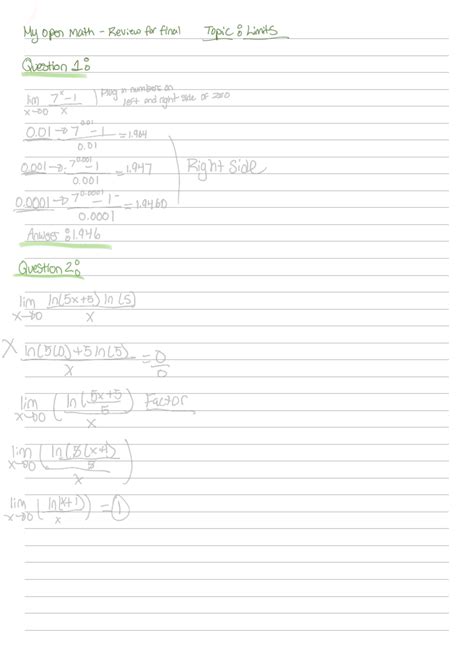 My Open Math - Review for final Topic: Limits
Question 1:
lim x→0 (7^x - 1)/x Plug in numbers on left and right side of zero
0.01 → (7^0.01 - 1)/0.01 = 1.964
0.001 → (7^0.001 - 1)/0.001 = 1.947
0.0001 → (7^0.0001 - 1)/0.0001 = 1.9460
Right Side
Answer: 1.946
Question 2:
lim x→0 ln(5x+5) ln(5)/x
X ln(5(0)+5 ln(5)/x = 0/0
lim x→0 (ln((5x+5)/5)/x) Factor
lim x→0 (ln(5(x+1)/5)/x)
lim x→0 (ln(x+1)/x) = 1